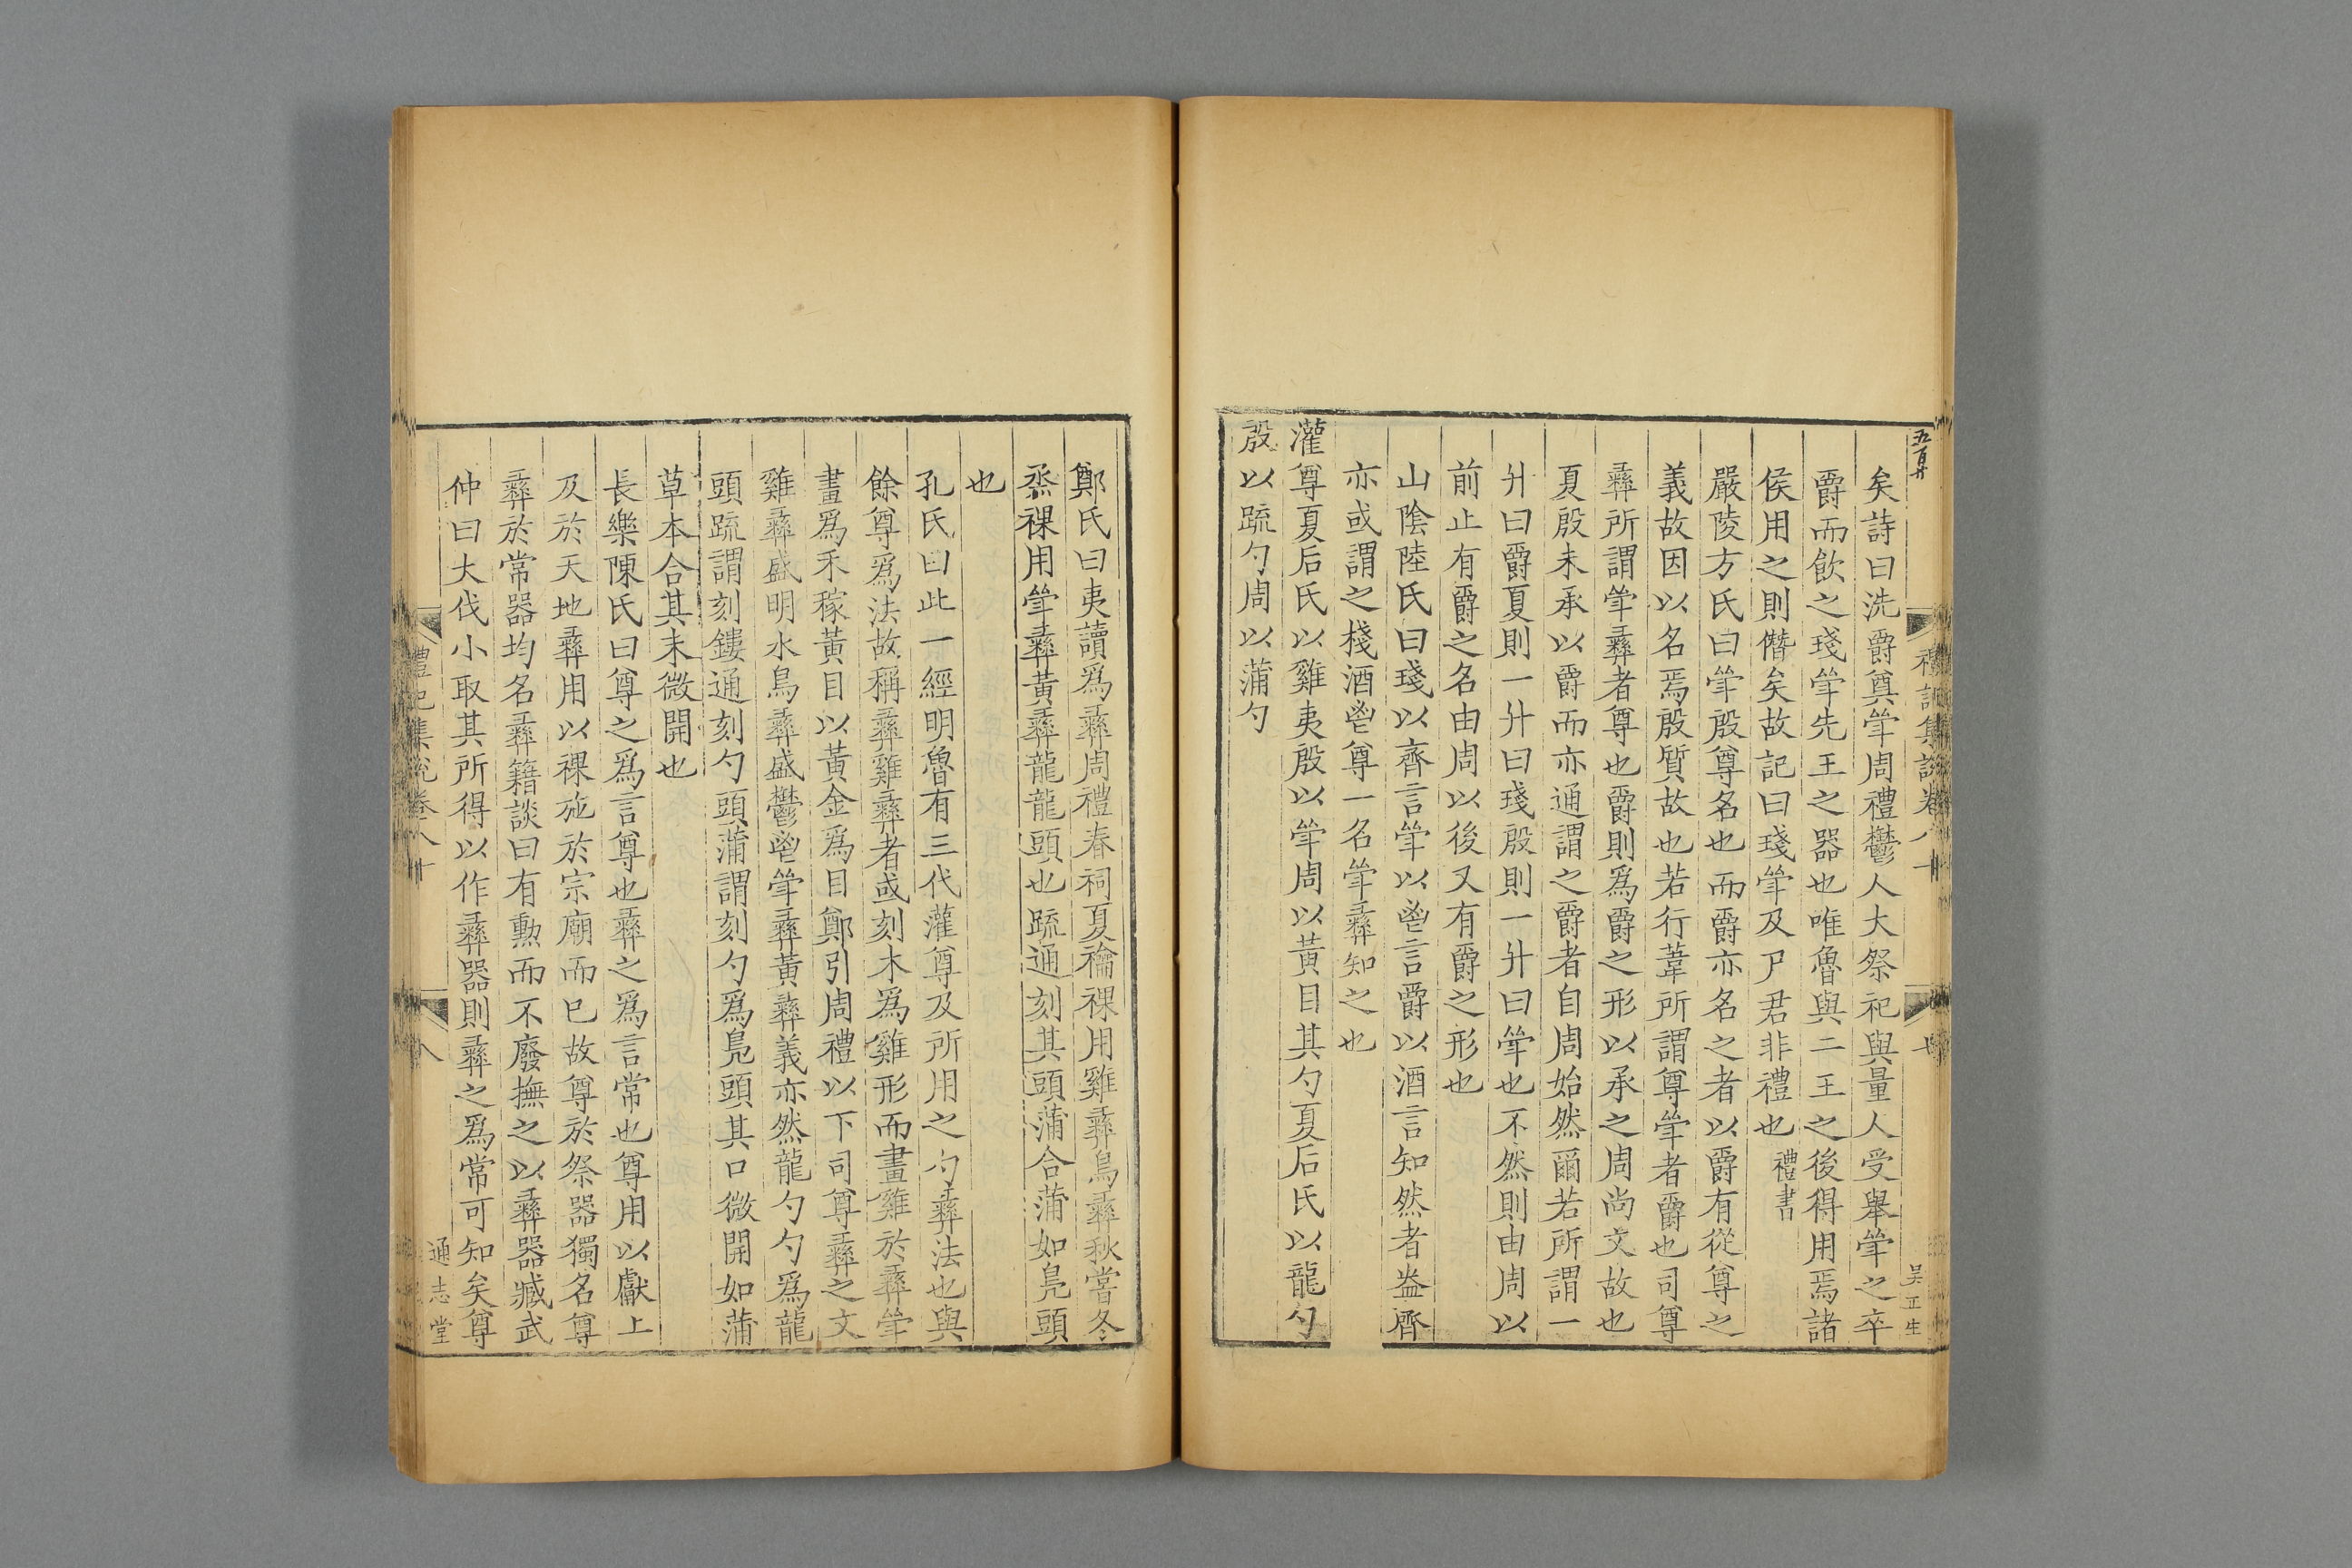 五百廿
禮記集說卷八十
七
吴正生
矣詩曰洗爵奠斝周禮鬱人大祭祀與量人受舉斝之卒
爵而飲之琖斝先王之器也唯魯與二王之後得用焉諸
侯用之則僭矣故記曰琖斝及尸君非禮也禮書
嚴陵方氏曰斝殷尊名也而爵亦名之者以爵有從尊之
義故因以名焉殷質故也若行葦所謂尊斝者爵也司尊
彝所謂斝彝者尊也爵則為爵之形以承之周尚文故也
夏殷未承以爵而亦通謂之爵者自周始然爾若所謂一
升曰爵夏則一升曰琖殷則一升曰斝也不然則由周以
前止有爵之名由周以後又有爵之形也
山陰陸氏曰琖以齊言斝以鬯言爵以酒言知然者盎齊
亦或謂之棧酒鬯尊一名斝彝知之也
灌尊夏后氏以雞夷殷以斝周以黃目其勺夏后氏以龍勺
殷以疏勺周以蒲勺
鄭氏曰夷讀為彝周禮春祠夏禴祼用雞彝鳥彝秋嘗冬
烝祼用斝彝黃彝龍龍頭也疏通刻其頭蒲合蒲如鳧頭
也
孔氏曰此一經明魯有三代灌尊及所用之勺彝法也與
餘尊為法故稱彝雞彝者或刻木為雞形而畫雞於彝斝
畫為禾稼黃目以黃金為目鄭引周禮以下司尊彝之文
雞彝盛明水鳥彝盛鬱鬯斝彝黃彝義亦然龍勺勺為龍
頭疏謂刻鏤通刻勺頭蒲謂刻勺為鳧頭其口微開如蒲
草本合其末微開也
長樂陳氏曰尊之為言尊也彝之為言常也尊用以獻上
及於天地彝用以祼施於宗廟而已故尊於祭器獨名尊
彝於常器均名彝籍談曰有勳而不廢撫之以彝器臧武
仲曰大伐小取其所得以作彝器則彝之為常可知矣尊
禮記集說卷八十
八
通志堂